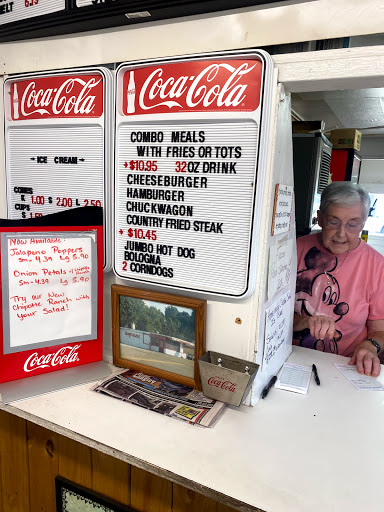 Coca-Cola
ICE CREAM
CONES
1.00 $ 2.00 $ 2.50
CUPS
Coca-Cola
COMBO MEALS
WITH FRIES OR TOTS
$10.95 32OZ DRINK
CHEESEBURGER
HAMBURGER
CHUCKWAGON
COUNTRY FRIED STEAK
$10.45
JUMBO HOT DOG
BOLOGNA
2 CORNDOGS
Now Available:
Jalapeno Poppers
Sm - 4.39 Lg 5.90
Onion Petals
Sm - 4.39 Lg 5.90
Try our New
Chipotle Ranch with
your Salad!
Coca-Cola
Coca-Cola